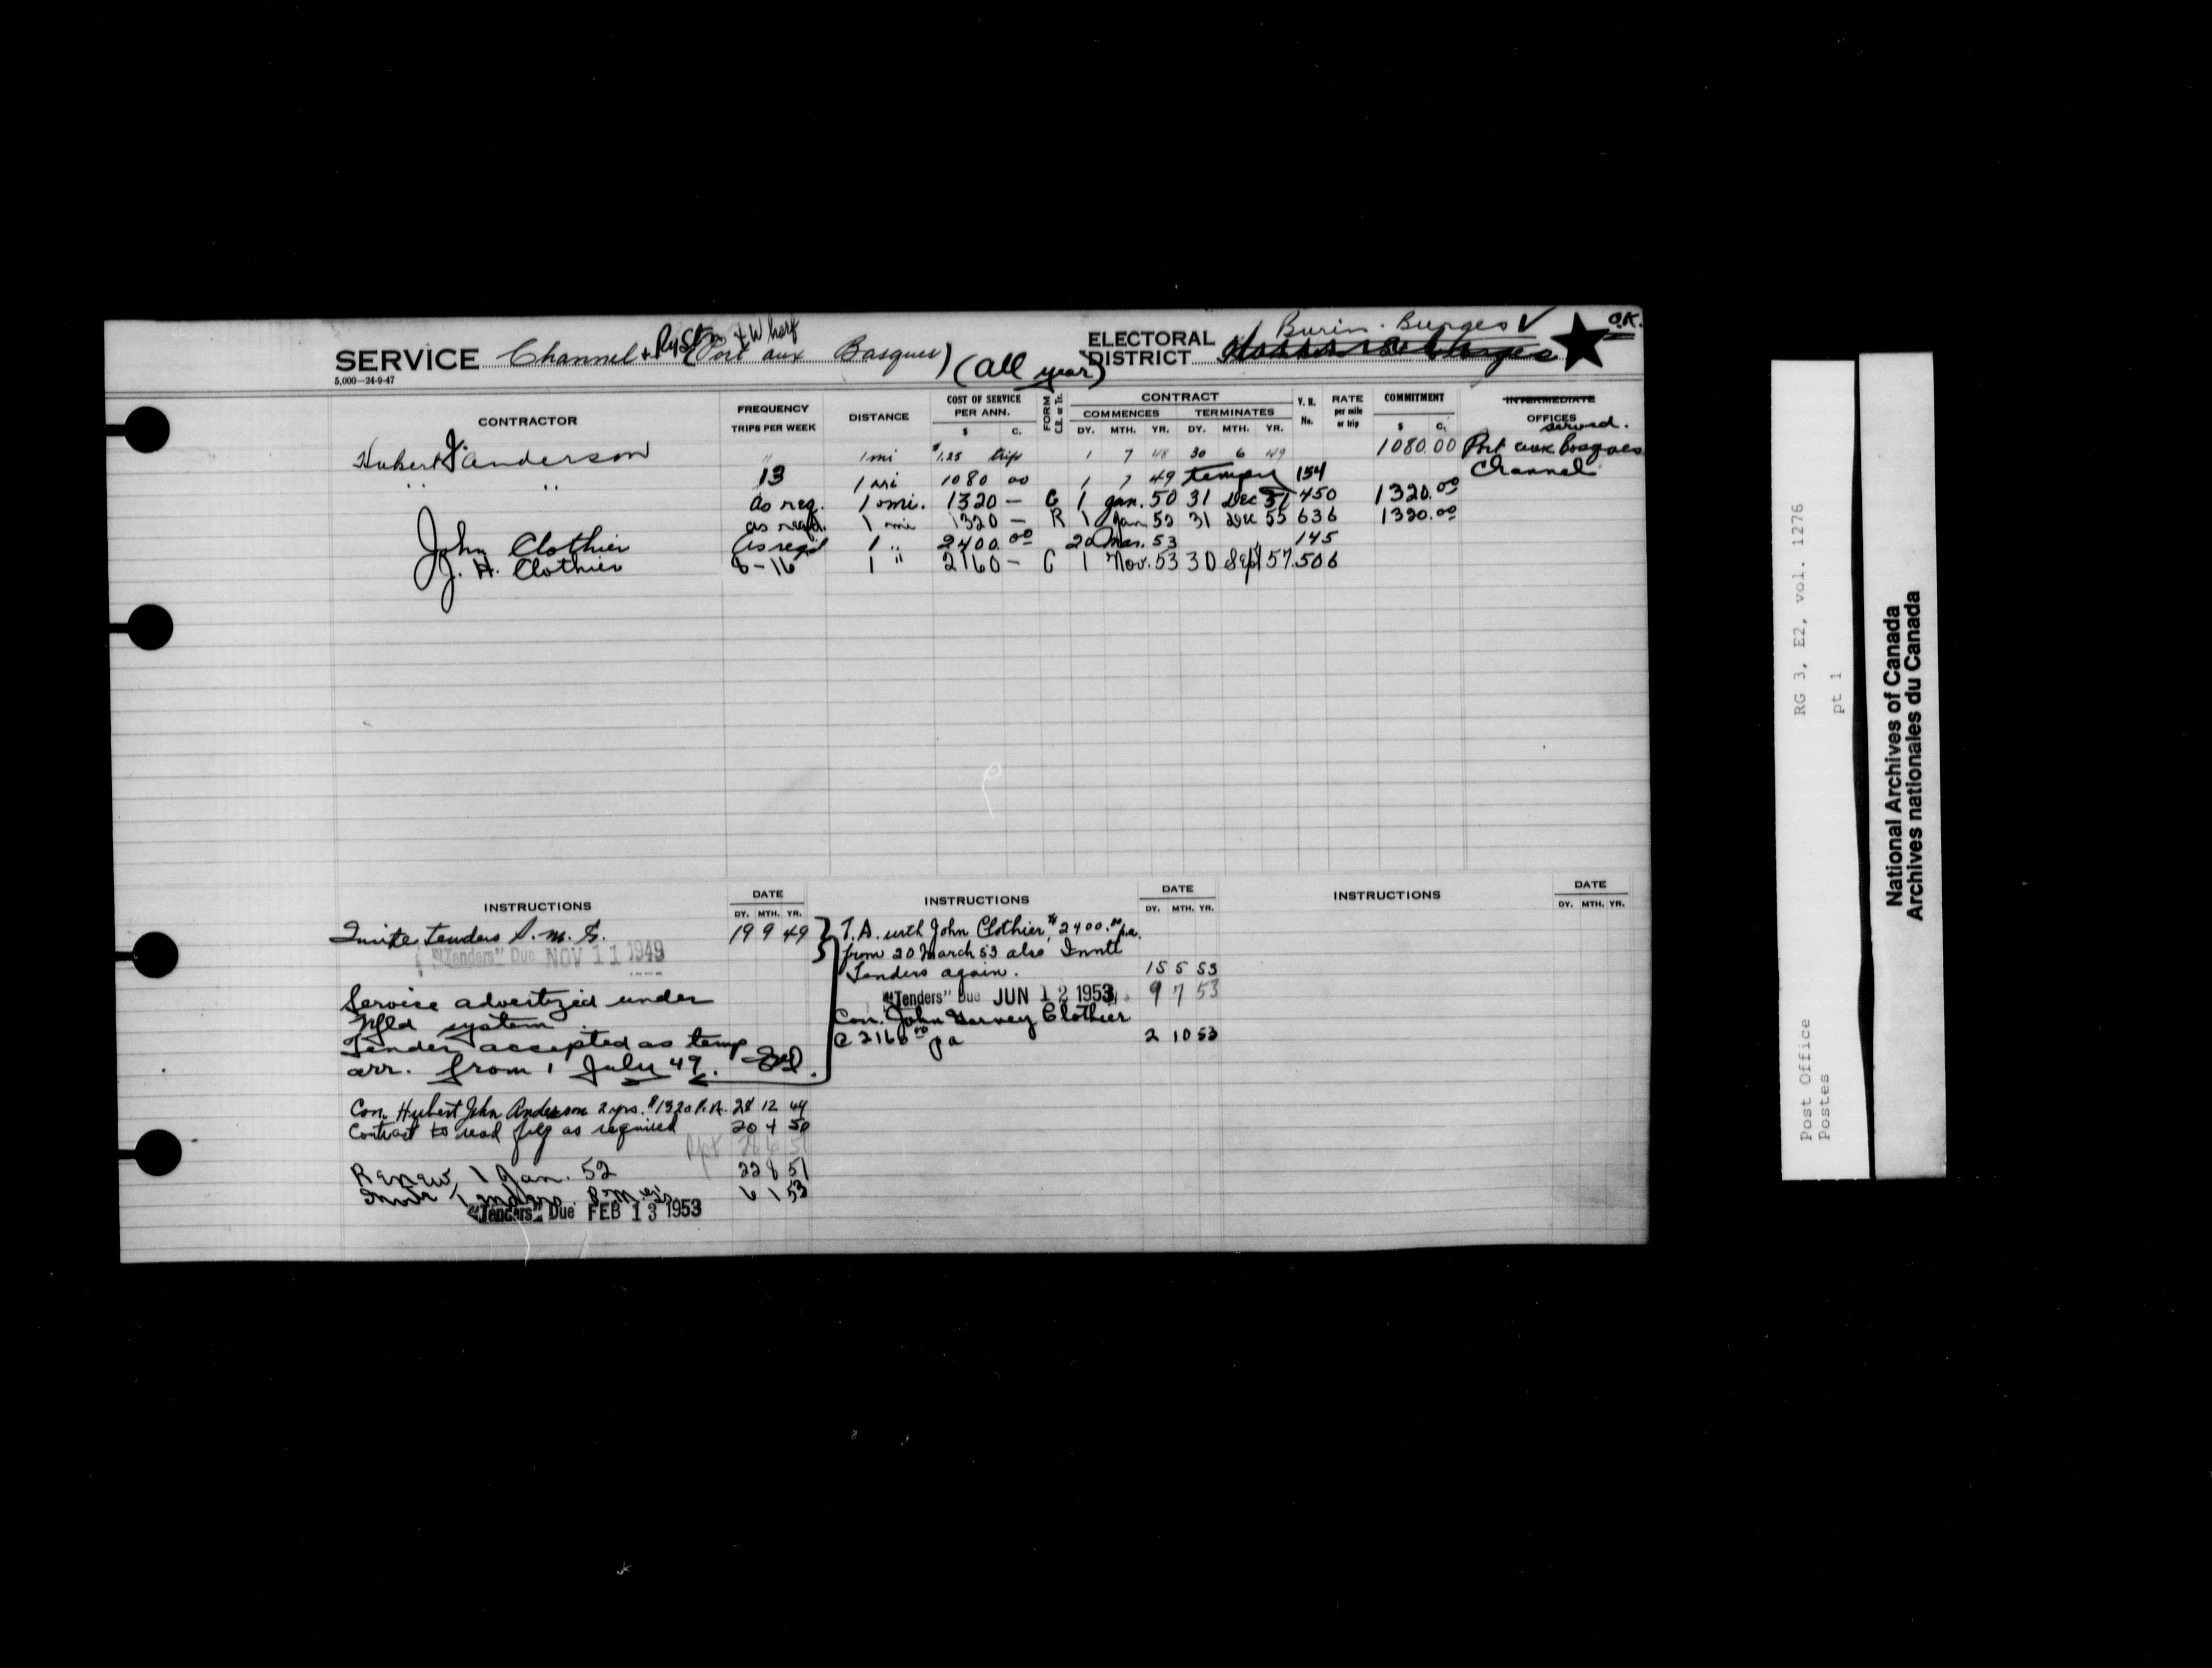 Burin - Burgeo V
O.K.
SERVICE Channel & Ry Stn & Wharf (Port aux Basques) (all year)
ELECTORAL DISTRICT
5,000—24-9-47
CONTRACTOR
FREQUENCY TRIPS PER WEEK
DISTANCE
COST OF SERVICE PER ANN. $ C.
FORM C.R. or Tr.
CONTRACT
COMMENCES DY. MTH. YR.
TERMINATES DY. MTH. YR.
V. R. No.
RATE per mile or trip
COMMITMENT $ C.
INTERMEDIATE OFFICES served.
Hubert J. Anderson " 1 mi $1.25 trip 1 7 48 30 6 49 1080.00 Port aux Basques
" " 13 1 mi 1080 00 1 7 49 tempy 154 Channel
as req. 1 mi. 1320 — C 1 Jan. 50 31 Dec 51 450 1320.00
as reqd. 1 mi 1320 — R 1 Jan. 52 31 Dec 55 636 1320.00
John Clothier as reqd 1 " 2400.00 20 Mar. 53 145
J. H. Clothier 8-16 1 " 2160 — C 1 Nov. 53 30 Sept 57 506
INSTRUCTIONS
DATE
DY. MTH. YR.
Invite tenders S.M.S. 19 9 49
"Tenders" Due NOV 11 1949
Service advertized under
Nfld system
Tender accepted as temp
arr. from 1 July 49.
Con. Hubert John Anderson 2 yrs. $1320 P.A. 28 12 49
Contract to read frlg as required 20 4 50
Renew 1 Jan. 52 22 8 51
Invite Tenders 6 1 53
"Tenders" Due FEB 13 1953
INSTRUCTIONS
DATE
DY. MTH. YR.
T.A. with John Clothier $2400.00 p.a.
from 20 March 53 also Invite
Tenders again. 15 5 53
"Tenders" Due JUN 12 1953 9 7 53
Con. John Harvey Clothier
@ 2160.00 pa 2 10 53
INSTRUCTIONS
DATE
DY. MTH. YR.
RG 3, E2, vol. 1276
pt 1
Post Office
Postes
National Archives of Canada
Archives nationales du Canada